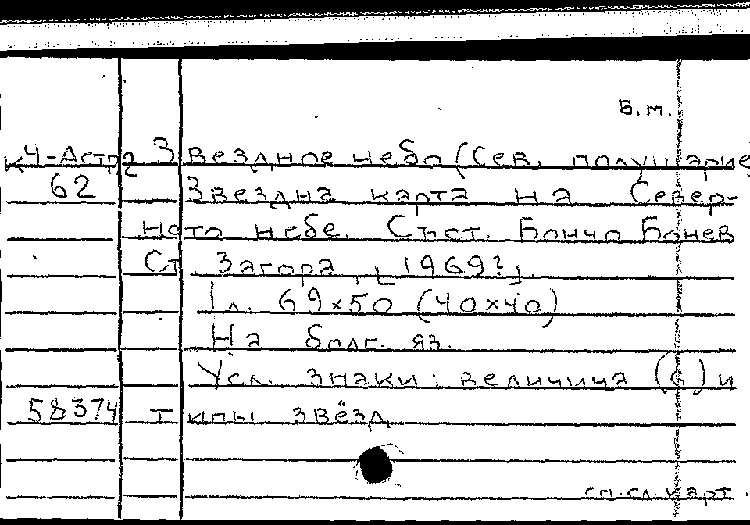 Б.м.
К4-Астр2 Звездное небо (Сев. полушарие)
62 Звездна карта на Север-
ното небе. Съст. Бончо Бонев
Ст Загора, [1969?].
1 л. 69×50 (40×40)
На болг. яз.
Усл. знаки: величина (6) и
58374 типы звёзд
сл. карт.